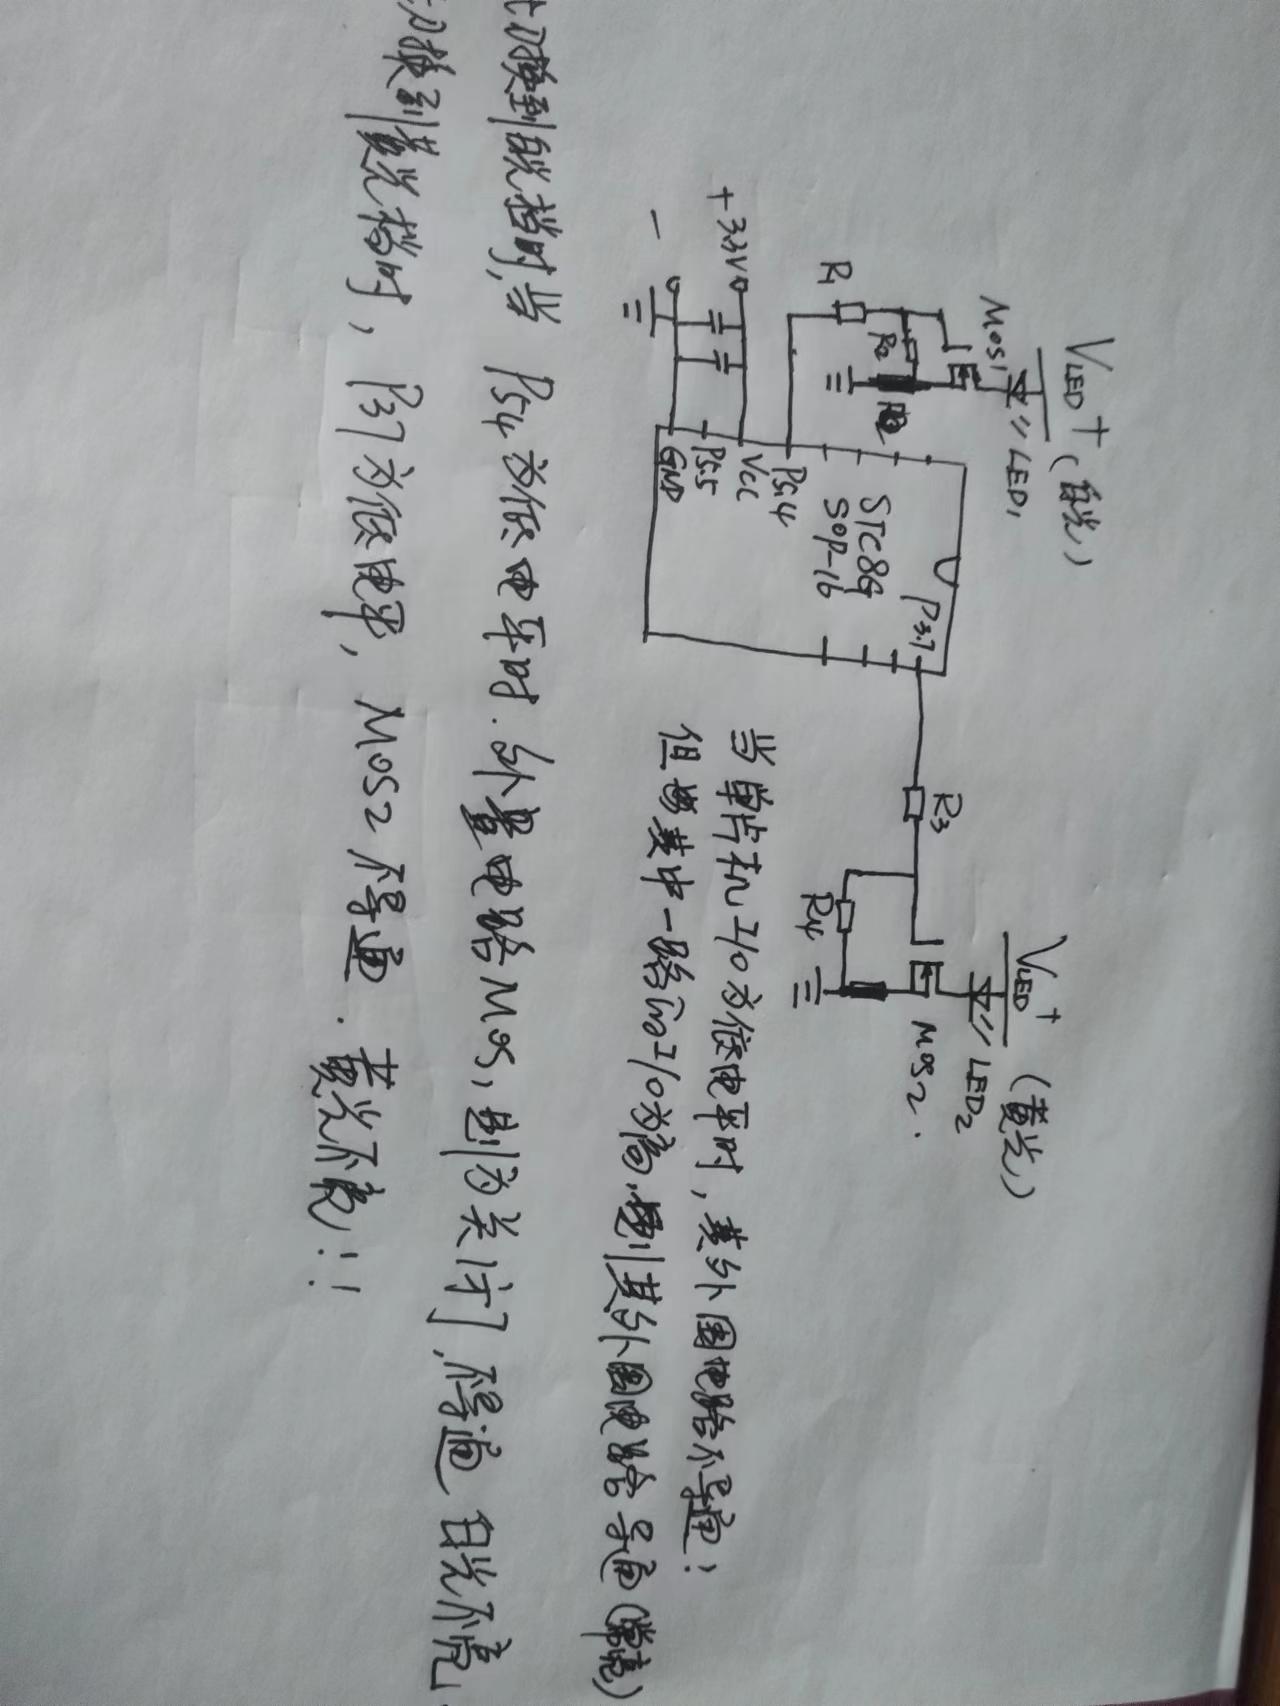 VLED+ (白光)
LED1
MOS1
R1
R2
+3.3V
−
P5.4
VCC
P5.5
GND
STC8G
SOP-16
P3.7
R3
R4
VLED+ (黄光)
LED2
MOS2.
当单片机I/O为低电平时,其外围电路不导通!
但当其中一路的I/O为高,则其外围电路导通(常亮)
切换到白光档时,当 P54为低电平时.外置电路MOS1则为关闭,不导通 白光不亮
切换到黄光档时,P37为低电平,MOS2不导通.黄光不亮!!